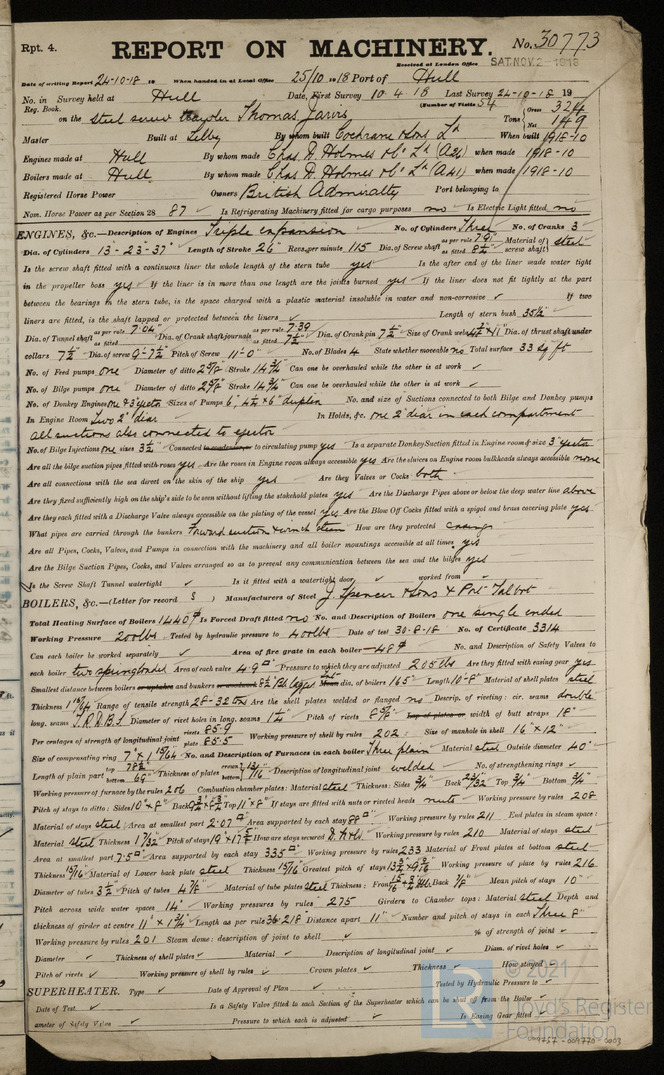 Rpt. 4.
REPORT ON MACHINERY.
No. 30773
Received at London Office
SAT. NOV. 2 - 1918
Date of writing Report 24-10-18 19 When handed in at Local Office 25/10 1918 Port of Hull
No. in Survey held at Hull Date, First Survey 10.4.18 Last Survey 24-10-18 19
Reg. Book. (Number of Visits 54
on the steel screw Thomas Jarvis Tons Gross 324 Net 149
Master Built at Selby By whom built Cochrane & Sons Ld When built 1918-10
Engines made at Hull By whom made Chas D. Holmes & Co Ld when made 1918-10
Boilers made at Hull By whom made Chas D. Holmes & Co Ld when made 1918-10
Registered Horse Power Owners British Admiralty Port belonging to
Nom. Horse Power as per Section 28 87 Is Refrigerating Machinery fitted for cargo purposes no Is Electric Light fitted no
ENGINES, &c.—Description of Engines Triple expansion No. of Cylinders Three No. of Cranks 3
Dia. of Cylinders 13"-23"-37" Length of Stroke 26" Revs. per minute 115 Dia. of Screw shaft as per rule 7.91 as fitted 8½" Material of screw shaft steel
Is the screw shaft fitted with a continuous liner the whole length of the stern tube yes Is the after end of the liner made water tight
in the propeller boss yes If the liner is in more than one length are the joints burned yes If the liner does not fit tightly at the part
between the bearings in the stern tube, is the space charged with a plastic material insoluble in water and non-corrosive ✓ If two
liners are fitted, is the shaft lapped or protected between the liners ✓ Length of stern bush 35½"
Dia. of Tunnel shaft as per rule 7.04" as fitted Dia. of Crank shaft journals as per rule 7.39 as fitted 7½" Dia. of Crank pin 7½" Size of Crank webs Dia. of thrust shaft under
collars 7½" Dia. of screw 9'-7½" Pitch of Screw 11'-0" No. of Blades 4 State whether moveable no Total surface 33 sq ft
No. of Feed pumps one Diameter of ditto 2⅞" Stroke 14¾" Can one be overhauled while the other is at work ✓
No. of Bilge pumps one Diameter of ditto 2⅞" Stroke 14¾" Can one be overhauled while the other is at work ✓
No. of Donkey Engines one & 3" ejector Sizes of Pumps 6", 4½" x 6" duplex No. and size of Suctions connected to both Bilge and Donkey pumps
In Engine Room Two 2" diar In Holds, &c. one 2" diar in each compartment
all suctions also connected to ejector
No. of Bilge Injections one sizes 3½" Connected to condenser, or to circulating pump yes Is a separate Donkey Suction fitted in Engine room & size 3" ejector
Are all the bilge suction pipes fitted with roses yes Are the roses in Engine room always accessible yes Are the sluices on Engine room bulkheads always accessible none
Are all connections with the sea direct on the skin of the ship yes Are they Valves or Cocks both
Are they fixed sufficiently high on the ship's side to be seen without lifting the stokehold plates yes Are the Discharge Pipes above or below the deep water line above
Are they each fitted with a Discharge Valve always accessible on the plating of the vessel yes Are the Blow Off Cocks fitted with a spigot and brass covering plate yes
What pipes are carried through the bunkers Forward suction & winch steam How are they protected casings
Are all Pipes, Cocks, Valves, and Pumps in connection with the machinery and all boiler mountings accessible at all times yes
Are the Bilge Suction Pipes, Cocks, and Valves arranged so as to prevent any communication between the sea and the bilges yes
Is the Screw Shaft Tunnel watertight ✓ Is it fitted with a watertight door ✓ worked from ✓
BOILERS, &c.—(Letter for record S) Manufacturers of Steel J. Spencer & Sons & Port Talbot
Total Heating Surface of Boilers 1440 Is Forced Draft fitted no No. and Description of Boilers one single ended
Working Pressure 200 lbs Tested by hydraulic pressure to 400 lbs Date of test 30-8-18 No. of Certificate 3314
Can each boiler be worked separately ✓ Area of fire grate in each boiler 48 No. and Description of Safety Valves to
each boiler two spring loaded Area of each valve 4.9 Pressure to which they are adjusted 205 lbs Are they fitted with easing gear yes
Smallest distance between boilers or uptakes and bunkers or woodwork Mean dia. of boilers 165" Length 10'-8" Material of shell plates steel
Thickness 1 15/64 Range of tensile strength 28-32 tons Are the shell plates welded or flanged no Descrip. of riveting: cir. seams double
long. seams T.R.D.B.S. Diameter of rivet holes in long. seams Pitch of rivets 8⅝" Lap of plates or width of butt straps 18"
Per centages of strength of longitudinal joint rivets 85.9 plate 85.5 Working pressure of shell by rules 202 Size of manhole in shell 16" x 12"
Size of compensating ring 7" x 1 15/64 No. and Description of Furnaces in each boiler Three plain Material steel Outside diameter 40"
Length of plain part top 78⅞" bottom 69" Thickness of plates crown bottom 13/16" Description of longitudinal joint welded No. of strengthening rings ✓
Working pressure of furnace by the rules 206 Combustion chamber plates: Material steel Thickness: Sides ¾" Back 23/32" Top ¾" Bottom ¾"
Pitch of stays to ditto: Sides 10" x 8" Back Top 11" x 8" If stays are fitted with nuts or riveted heads nuts Working pressure by rules 208
Material of stays steel Area at smallest part 2.07 Area supported by each stay 88 Working pressure by rules 211 End plates in steam space:
Material steel Thickness 1 7/32 Pitch of stays 19" x 17⅝" How are stays secured Working pressure by rules 210 Material of stays steel
Area at smallest part 7.5 Area supported by each stay 335 Working pressure by rules 233 Material of Front plates at bottom steel
Thickness 15/16 Material of Lower back plate steel Thickness 15/16 Greatest pitch of stays Working pressure of plate by rules 216
Diameter of tubes 3½ Pitch of tubes 4⅞" Material of tube plates steel Thickness: Front Back ⅞" Mean pitch of stays 10"
Pitch across wide water spaces 14" Working pressures by rules 275 Girders to Chamber tops: Material steel Depth and
thickness of girder at centre 11" x 1¾" Length as per rule Distance apart 11" Number and pitch of stays in each Three 8"
Working pressure by rules 201 Steam dome: description of joint to shell ✓ % of strength of joint ✓
Diameter ✓ Thickness of shell plates ✓ Material ✓ Description of longitudinal joint ✓ Diam. of rivet holes ✓
Pitch of rivets ✓ Working pressure of shell by rules ✓ Crown plates ✓ Thickness ✓ How stayed ✓
SUPERHEATER. Type ✓ Date of Approval of Plan ✓ Tested by Hydraulic Pressure to ✓
Date of Test ✓ Is a Safety Valve fitted to each Section of the Superheater which can be shut off from the Boiler ✓
ameter of Safety Valve ✓ Pressure to which each is adjusted ✓ Is Easing Gear fitted ✓
© 2021
Lloyd's Register
Foundation
009757-009770-0003